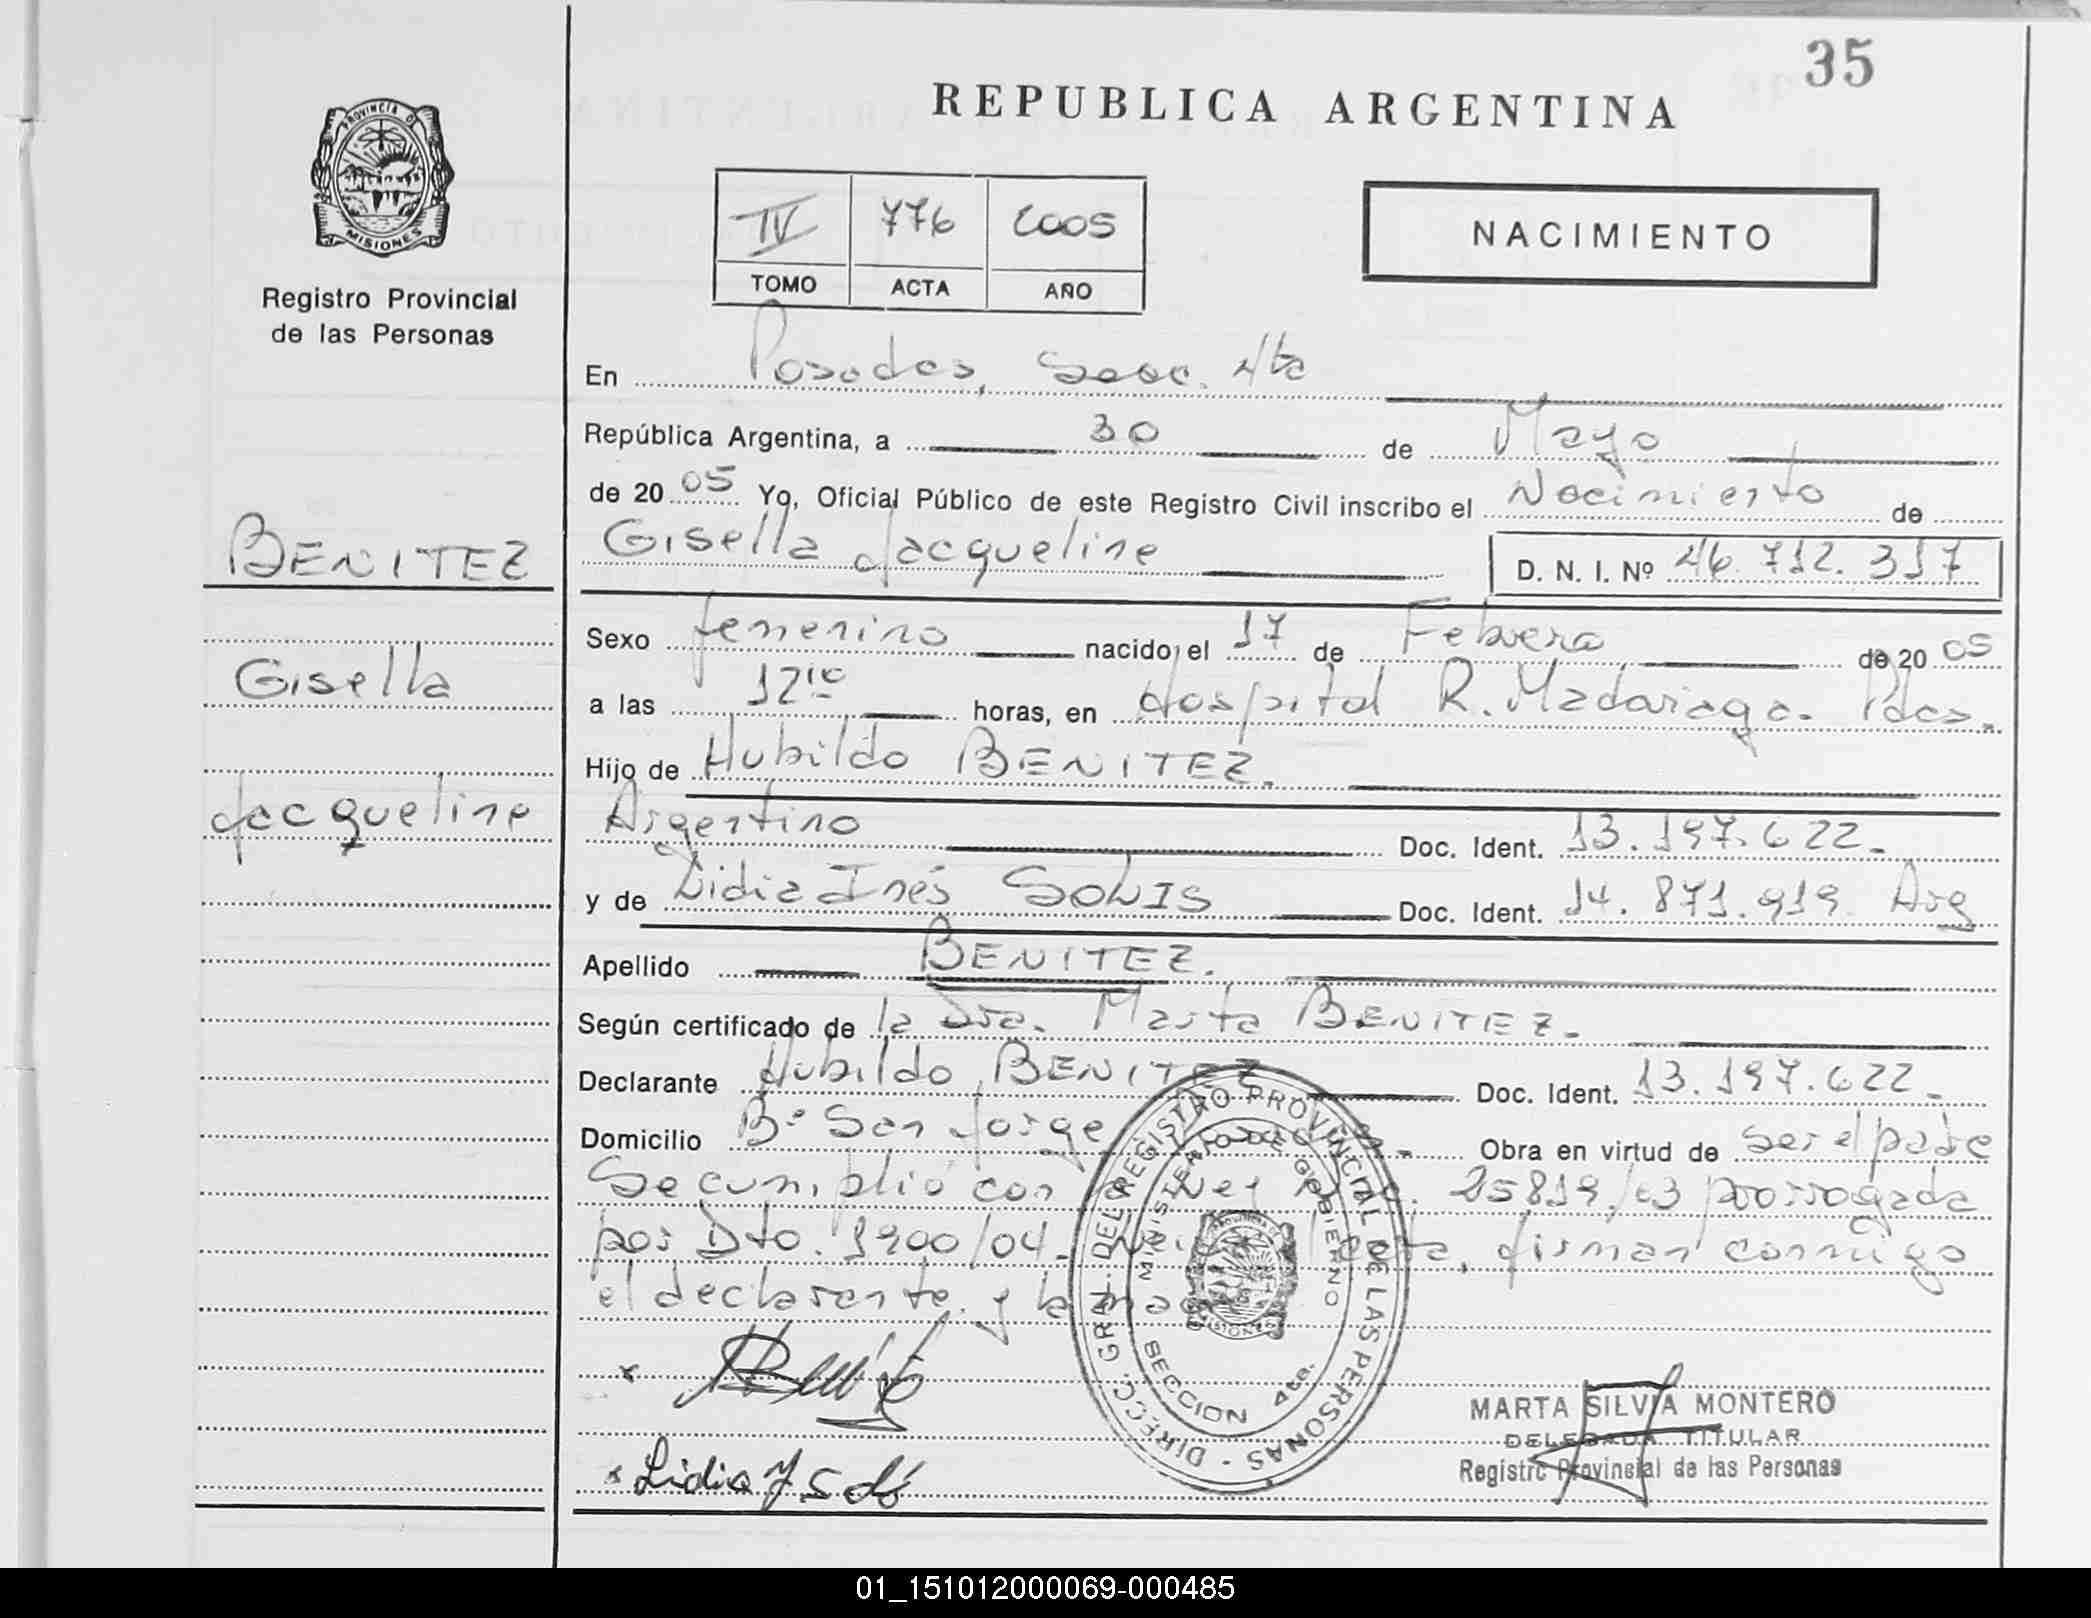 35
REPUBLICA ARGENTINA
PROVINCIA DE
MISIONES
Registro Provincial
de las Personas
IV 776 2005
TOMO ACTA AÑO
NACIMIENTO
En Posadas, Secc. 4ta
República Argentina, a 30 de Mayo
de 20 05 Yo, Oficial Público de este Registro Civil inscribo el Nacimiento de
BENITEZ
Gisella Jacqueline D. N. I. Nº 46.712.317
Sexo femenino nacido el 17 de Febrero de 20 05
Gisella
a las 12 10 horas, en Hospital R. Madariaga. Pdas.
Hijo de Hubildo BENITEZ.
Jacqueline
Argentino Doc. Ident. 13.197.622.
y de Lidia Inés SOLIS Doc. Ident. 14.871.919 Arg
Apellido BENITEZ.
Según certificado de la Dra. Marta BENITEZ.
Declarante Hubildo BENITEZ Doc. Ident. 13.197.622.
Domicilio Bº San Jorge Obra en virtud de ser el padre
Se cumplió con Ley 25819/03 prorrogada
por Dto. 1900/04. acta, firman conmigo
el declarante y la
DIRECC. GRAL. DEL REGISTRO PROVINCIAL DE LAS PERSONAS -
MINISTERIO DE GOBIERNO
SECCION 4ta.
MISIONES
Lidia I Solís
MARTA SILVIA MONTERO
DELEGADA TITULAR
Registro Provincial de las Personas
01_151012000069-000485